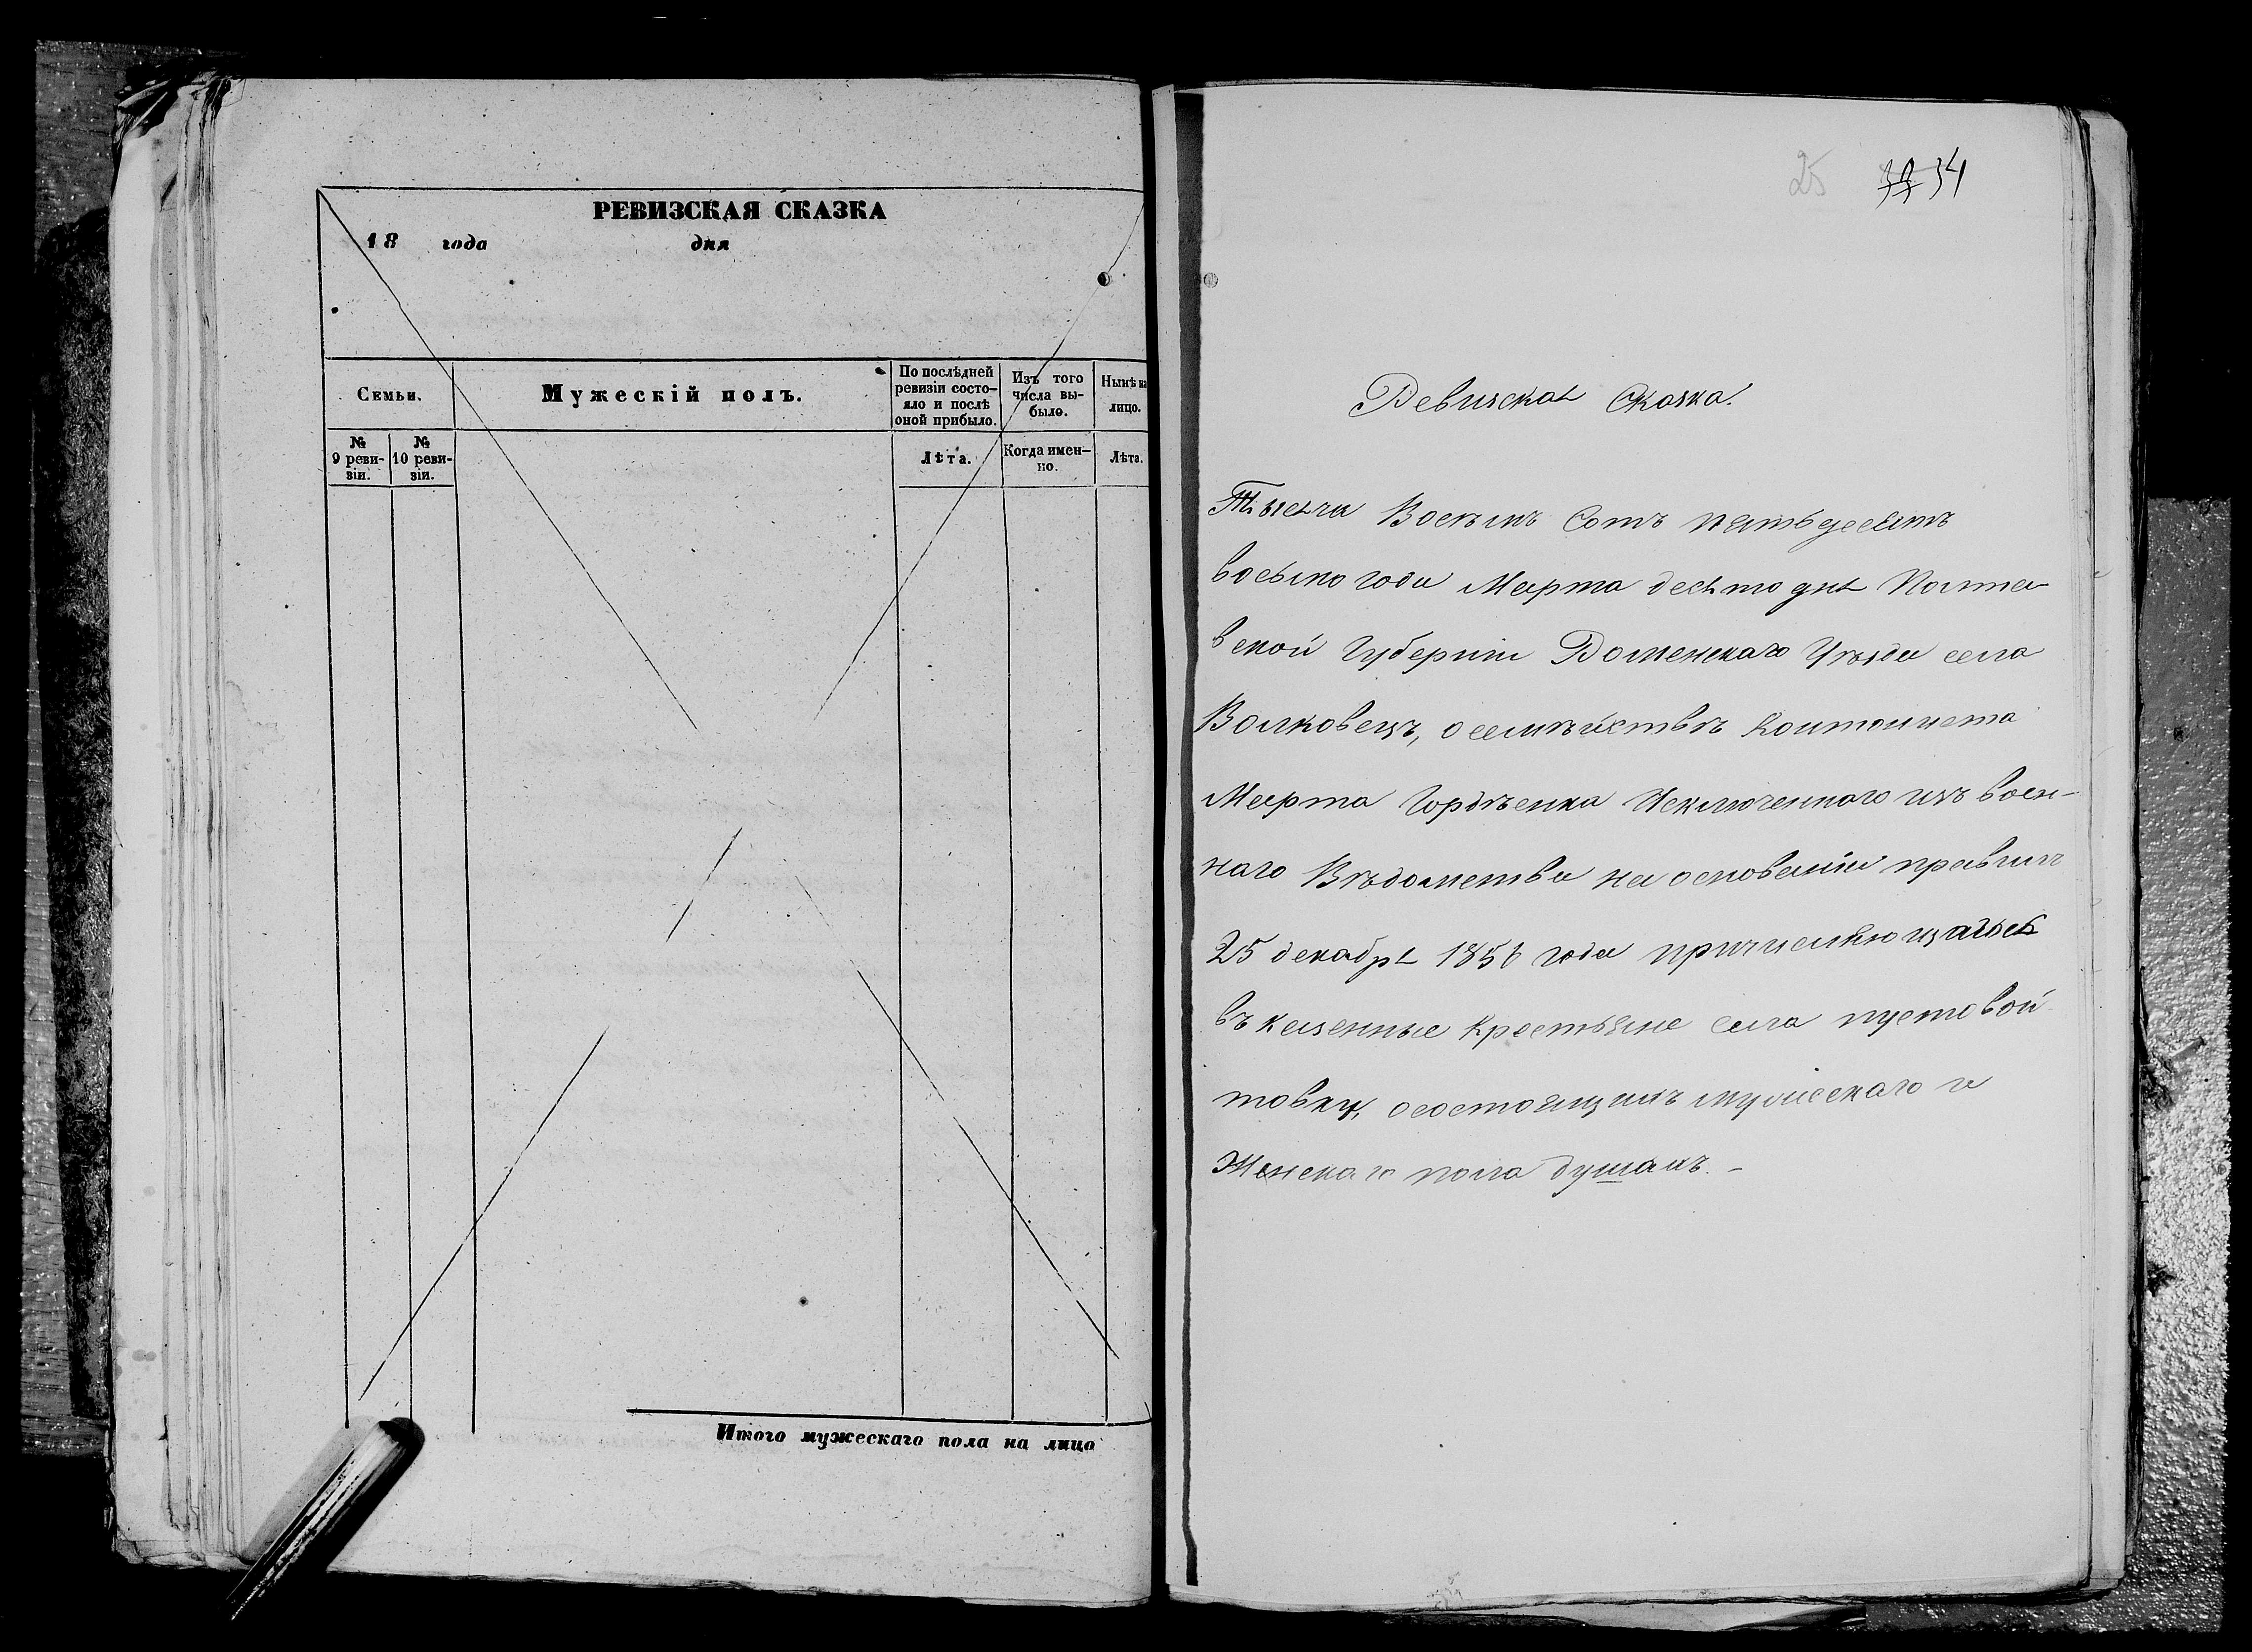 РЕВИЗСКАЯ СКАЗКА
18 года дня
Семьи.
Мужескій полъ.
По послѣдней
ревизіи состо-
яло и послѣ
оной прибыло.
Изъ того
числа вы-
было.
Нынѣ на
лицо.
№
9 реви-
зіи.
№
10 реви-
зіи.
Лѣта.
Когда имен-
но.
Лѣта.
Итого мужескаго пола на лицо
25 34
Ревизская Сказка.
Тысяча Восемъ Сотъ пятьдесятъ
восьмо года Марта десято дня Полта-
вской Губерніи Роменскаго Уѣзда села
Волковецъ, о семѣйствѣ Контониста
Марта Гордѣенка Исключенного изъ воен-
наго Вѣдомства на основаніи правилъ
25 декабря 1856 года причисляющагося
въ казенные крестьяне села пустовой
товки, о состоящихъ мужескаго и
Женскаго пола душахъ. -